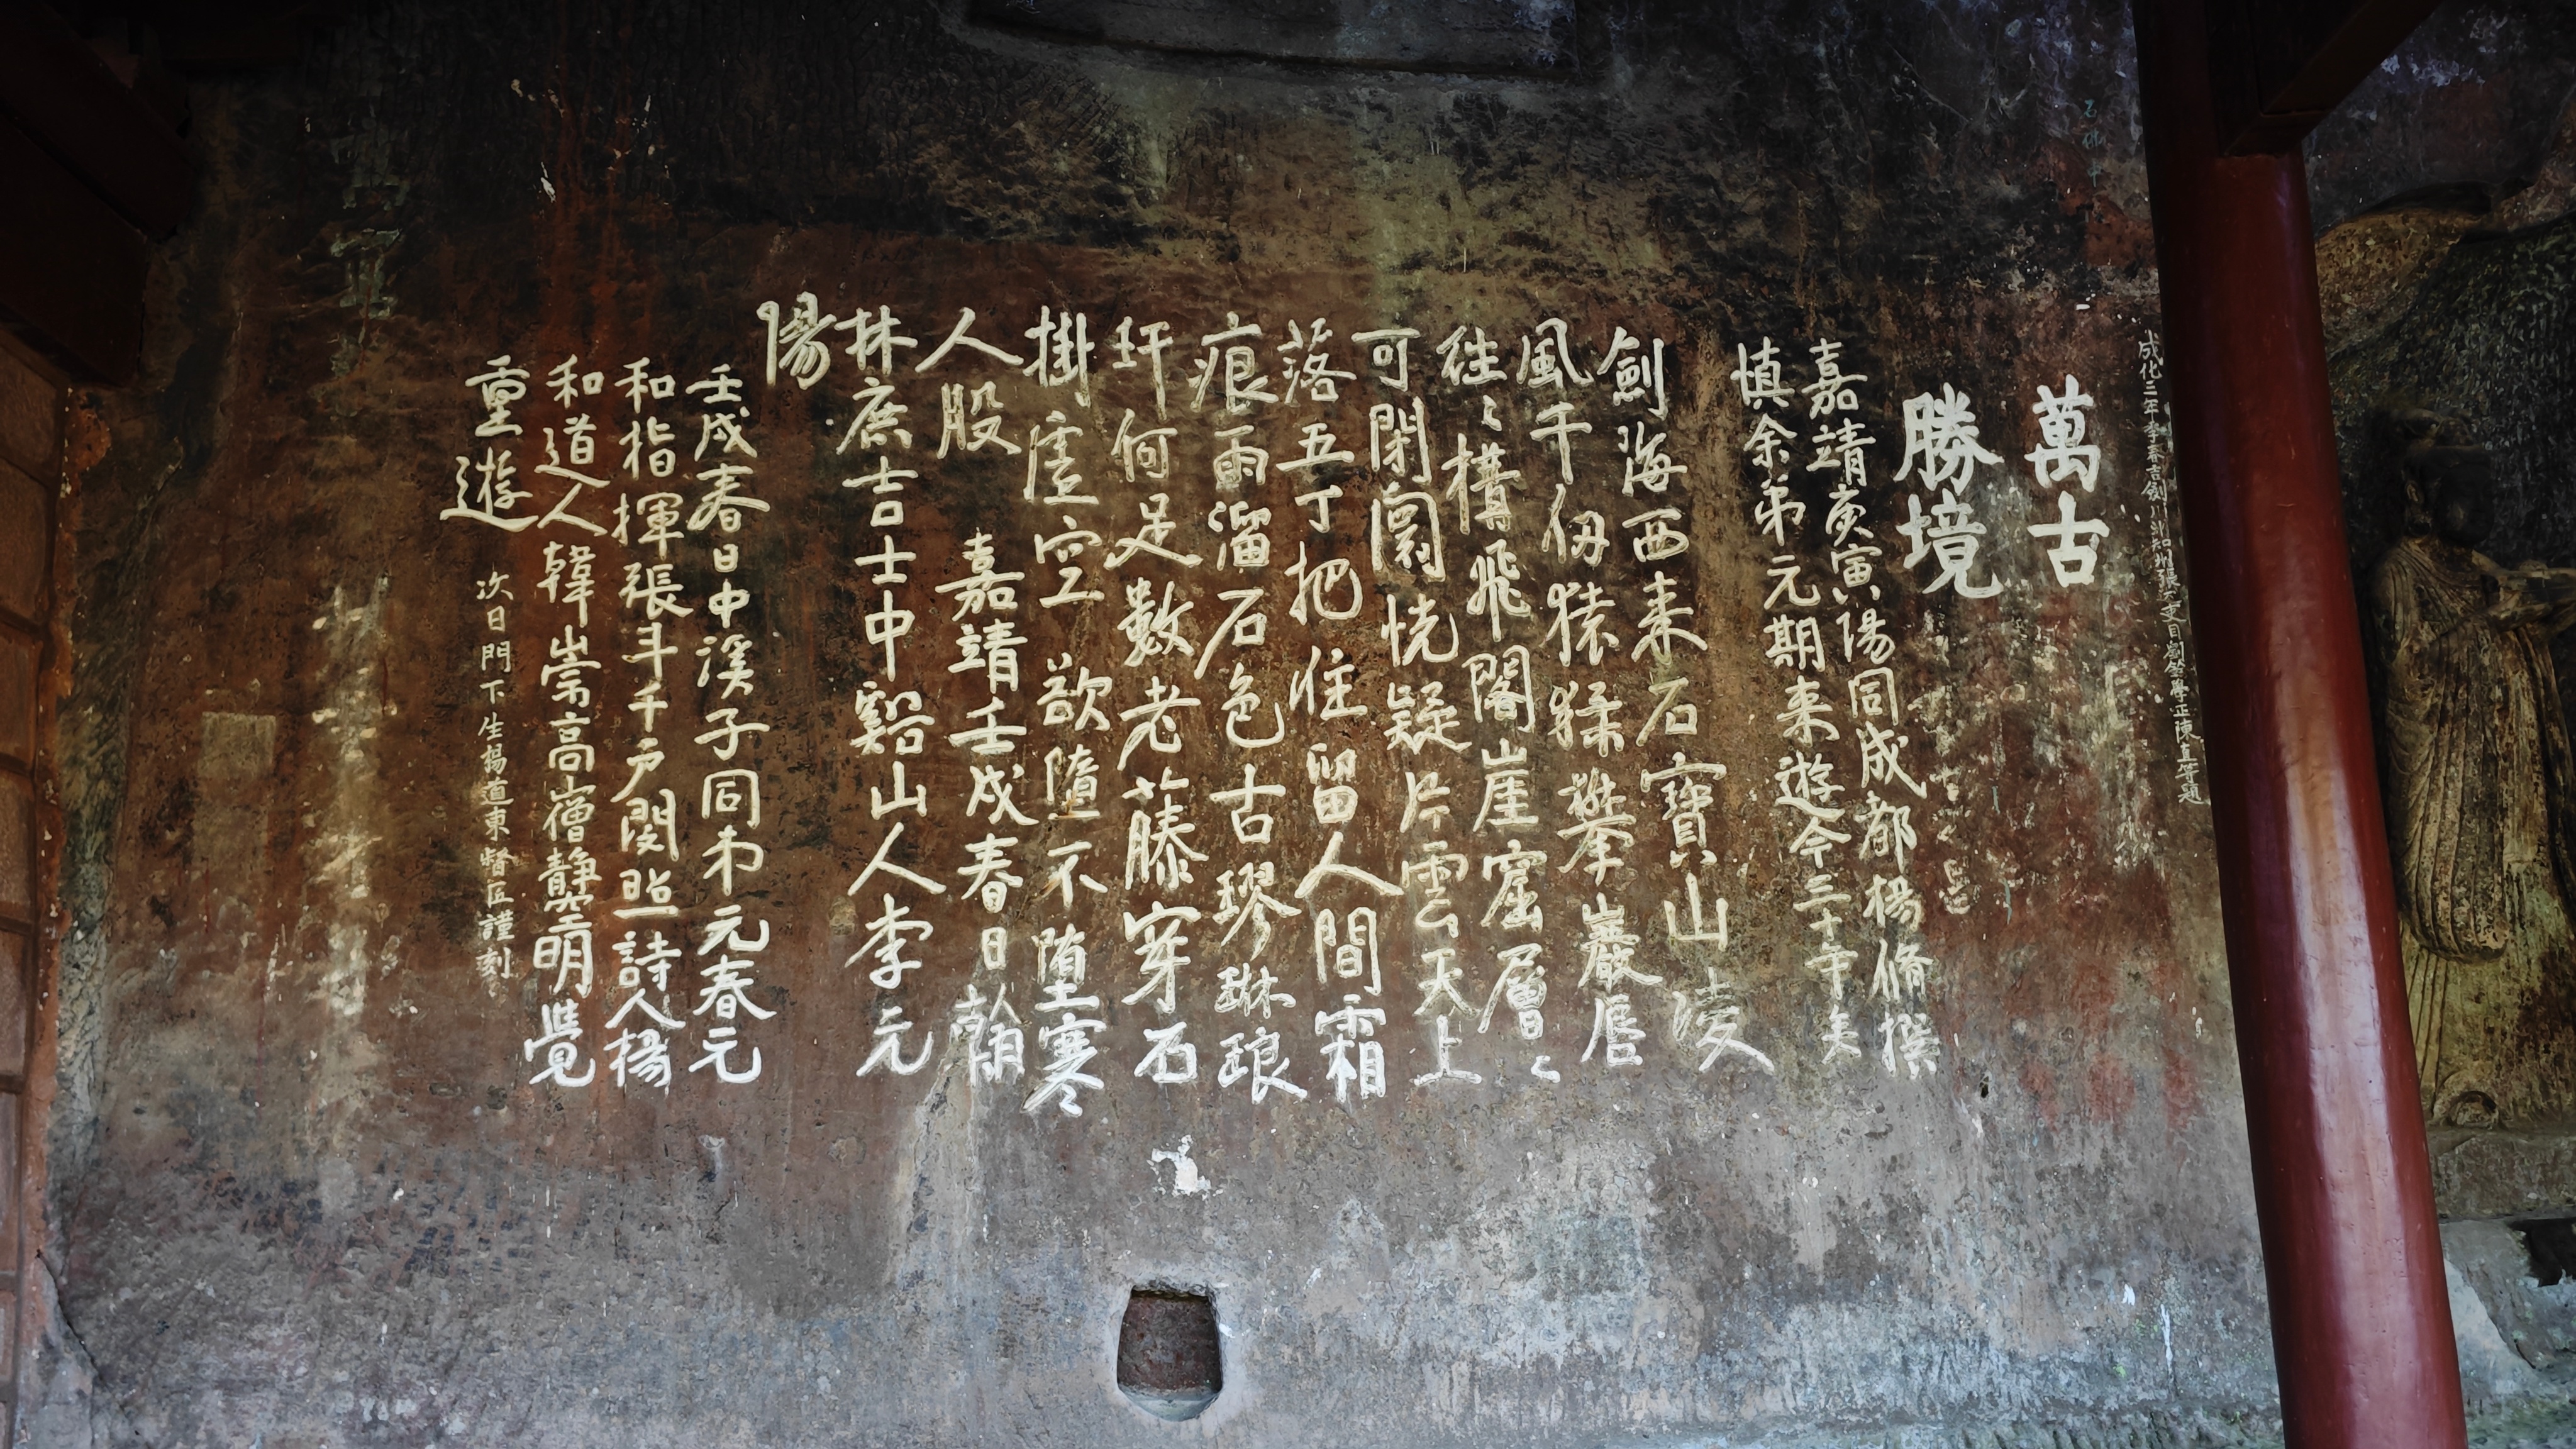 成化三年季春吉劍川
萬古
勝境
嘉靖庚寅陽同成都楊脩撰
慎余弟元期来遊今三十年矣
劍海西来石寶山凌
風千仞猿猱攀巖唇
徃〻構飛閣崖窟層〻
可閉關恍疑片雲天上
落五丁把住留人間霜
痕雨溜石色古璆琳琅
玕何足數老藤穿石
掛虛空欲墮不堕寒
人股 嘉靖壬戌春日翰
林庶吉士中谿山人李元
陽
壬戌春日中溪子同弟元春元
和指揮張斗千户閔照詩人楊
和道人韓崇高僧静空明覺
重遊 次日門下生楊道東督匠謹刻